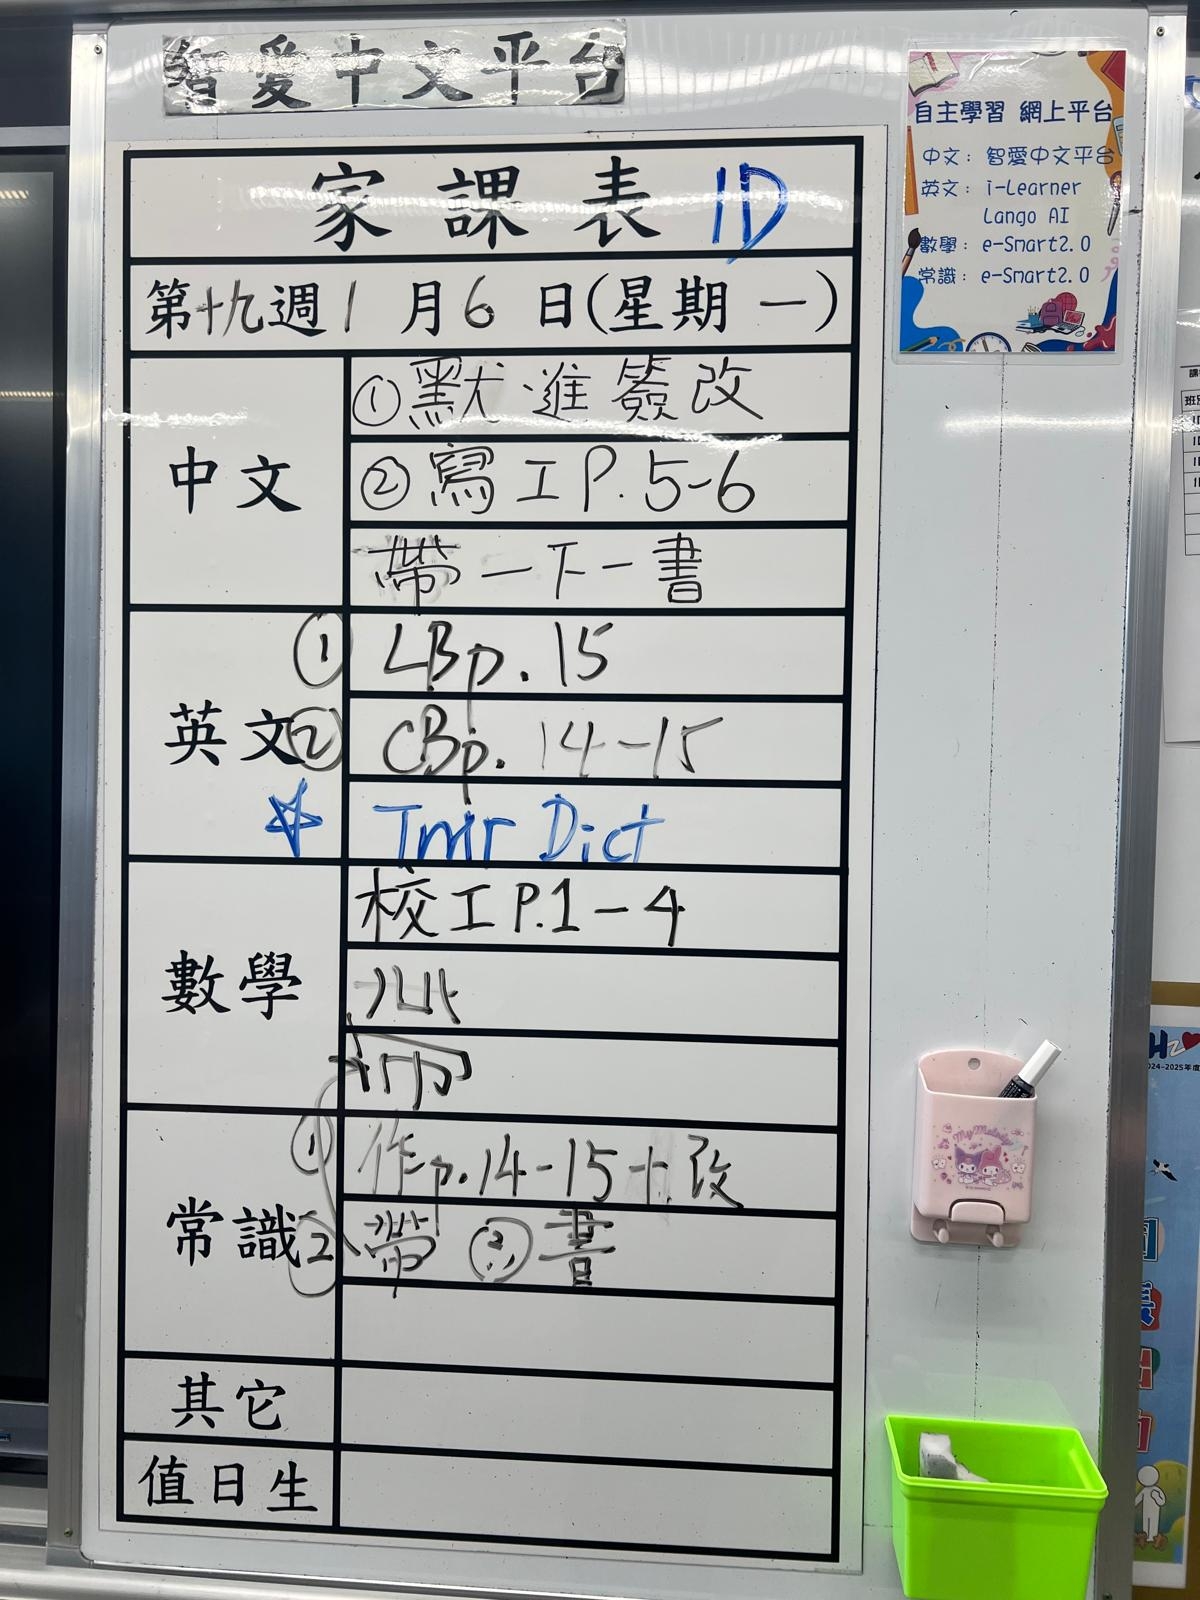 智愛中文平台
家課表 1D
第十九週 1月6日(星期一)
中文
①默進簽改
②寫工P.5-6
帶一下一書
英文
① LBp.15
② CBp.14-15
☆ Tmr Dict
數學
校工P.1-4
常識
① 作p.14-15+改
② 帶②書
其它
值日生
自主學習 網上平台
中文: 智愛中文平台
英文: i-Learner
Lango AI
數學: e-Smart2.0
常識: e-Smart2.0
My Melody
024-2025年度